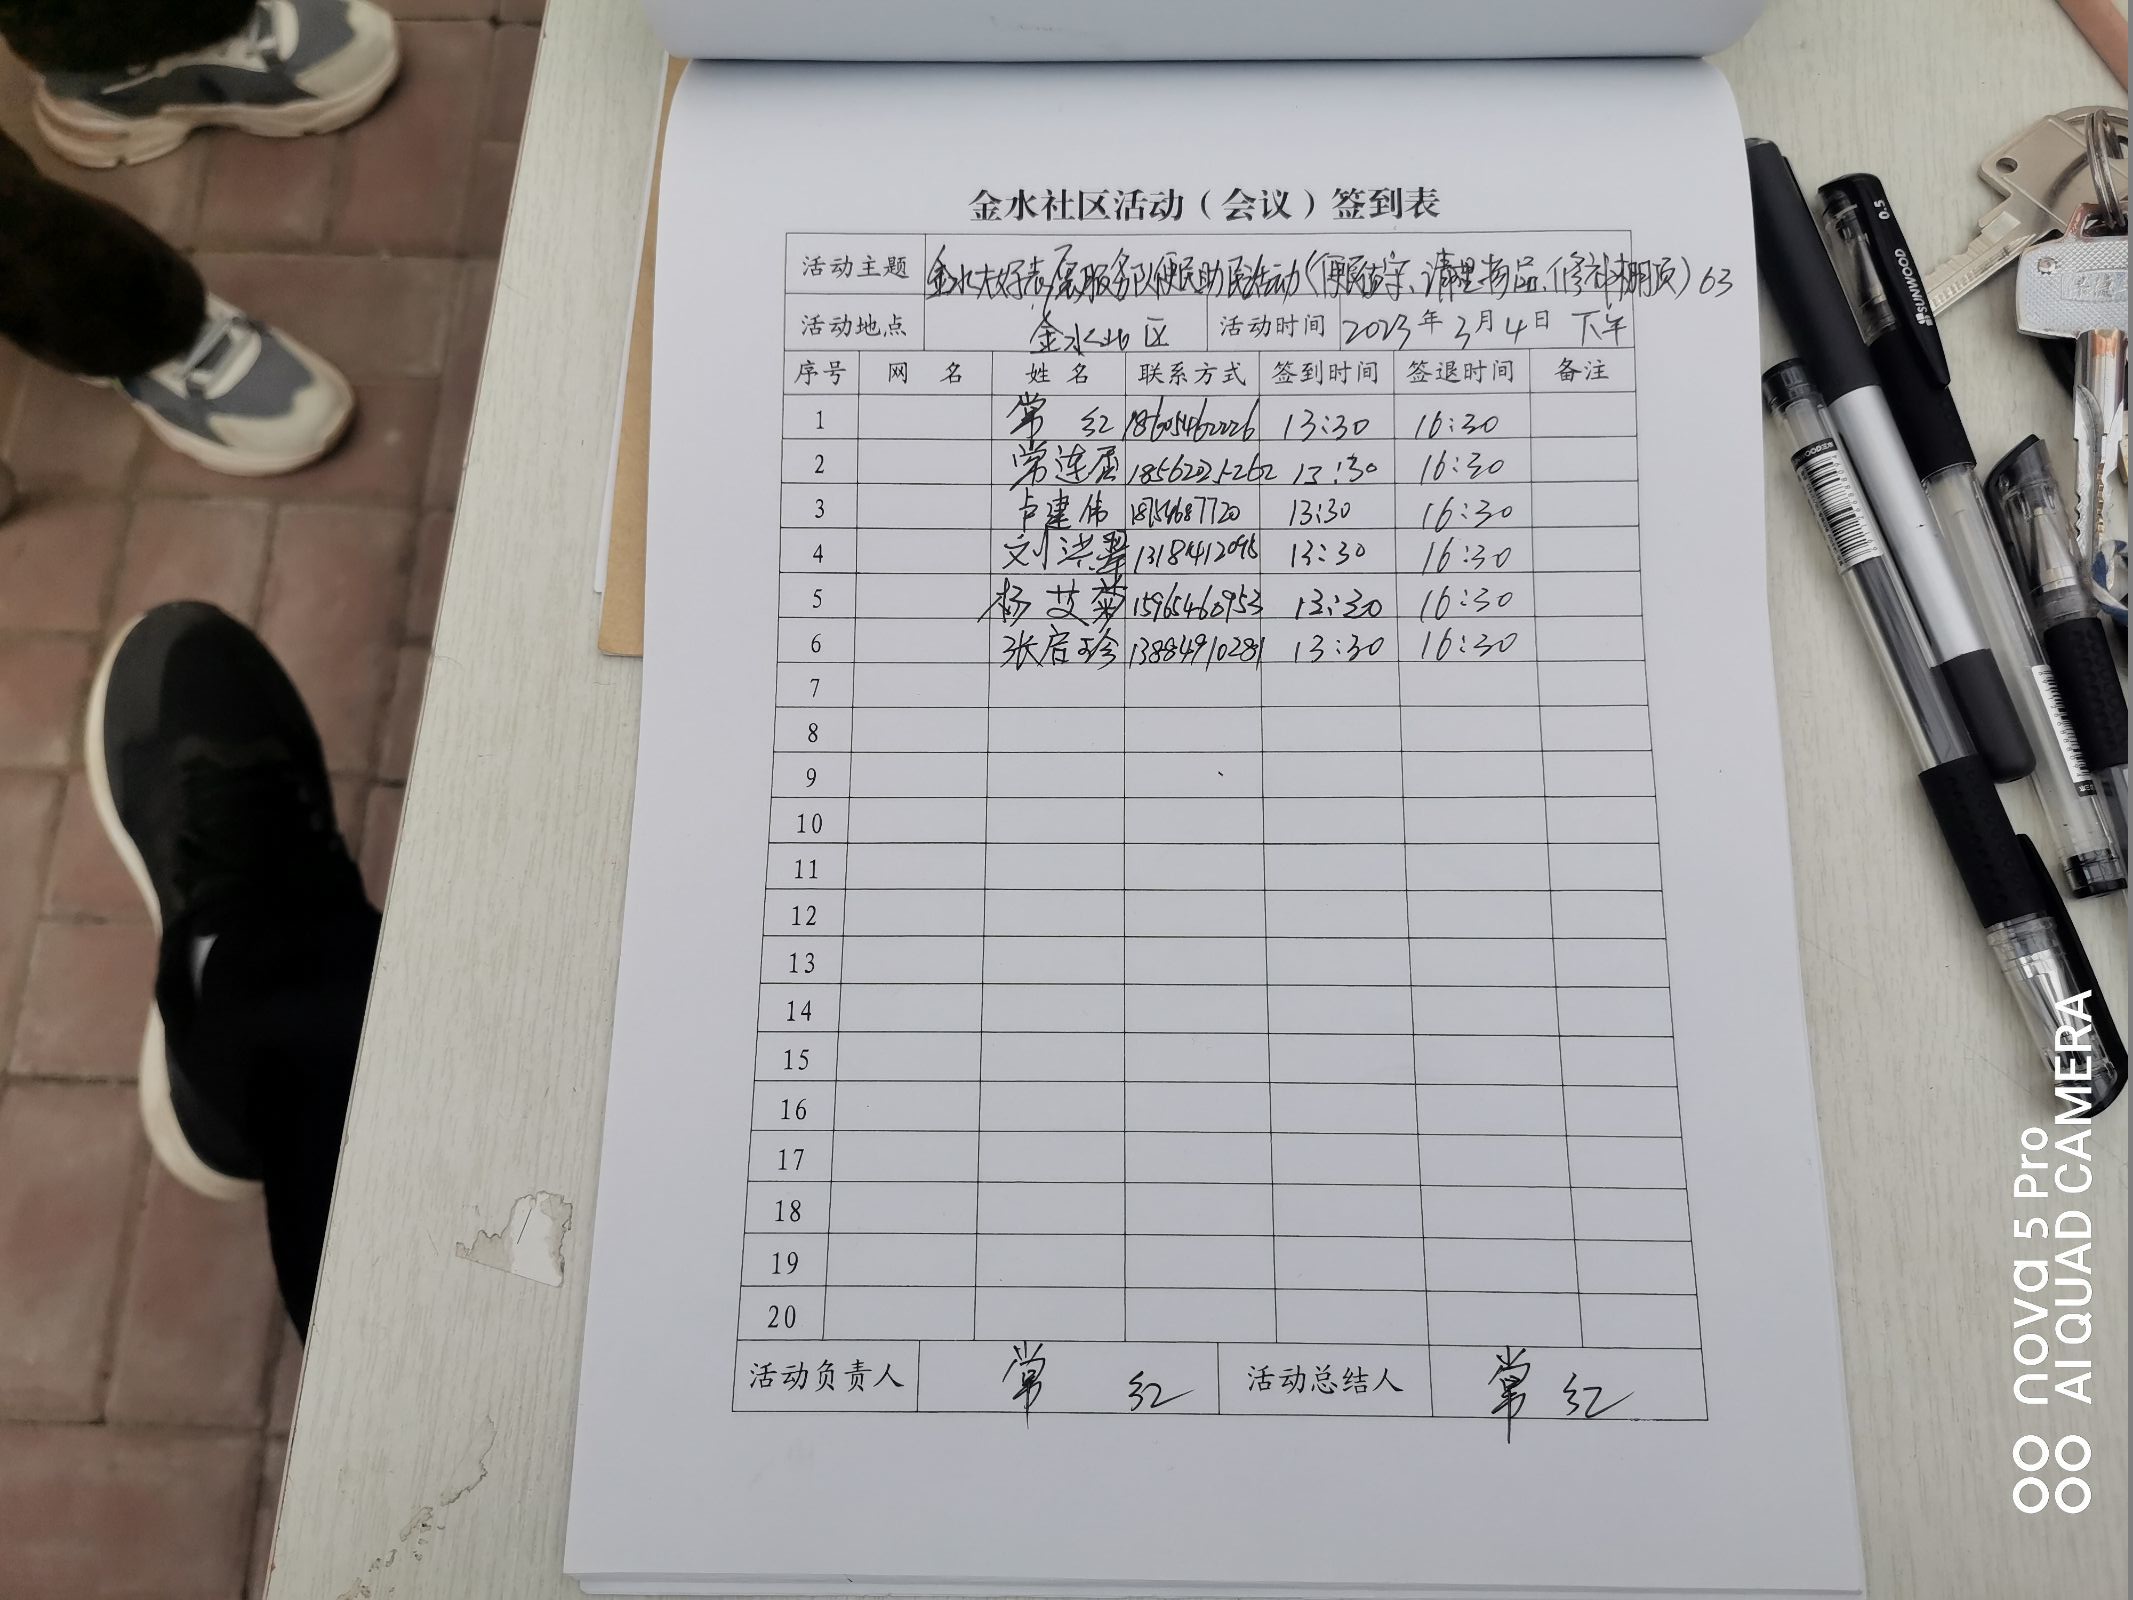 金水社区活动（会议）签到表
活动主题 金水大好志愿服务队便民助民活动（便民 、清理物品、修补棚顶）63
活动地点 金水北区 活动时间 2023年3月4日 下午
序号 网 名 姓 名 联系方式 签到时间 签退时间 备注
1 常 红 18605462226 13:30 16:30
2 常连 18562225262 13:30 16:30
3 卢建伟 18154687720 13:30 16:30
4 刘洪翠 13:30 16:30
5 杨艾菊 15965460953 13:30 16:30
6 张启珍 13884910281 13:30 16:30
7
8
9
10
11
12
13
14
15
16
17
18
19
20
活动负责人 常 红 活动总结人 常 红
0.5
SUNWOOD
nova 5 Pro
AI QUAD CAMERA